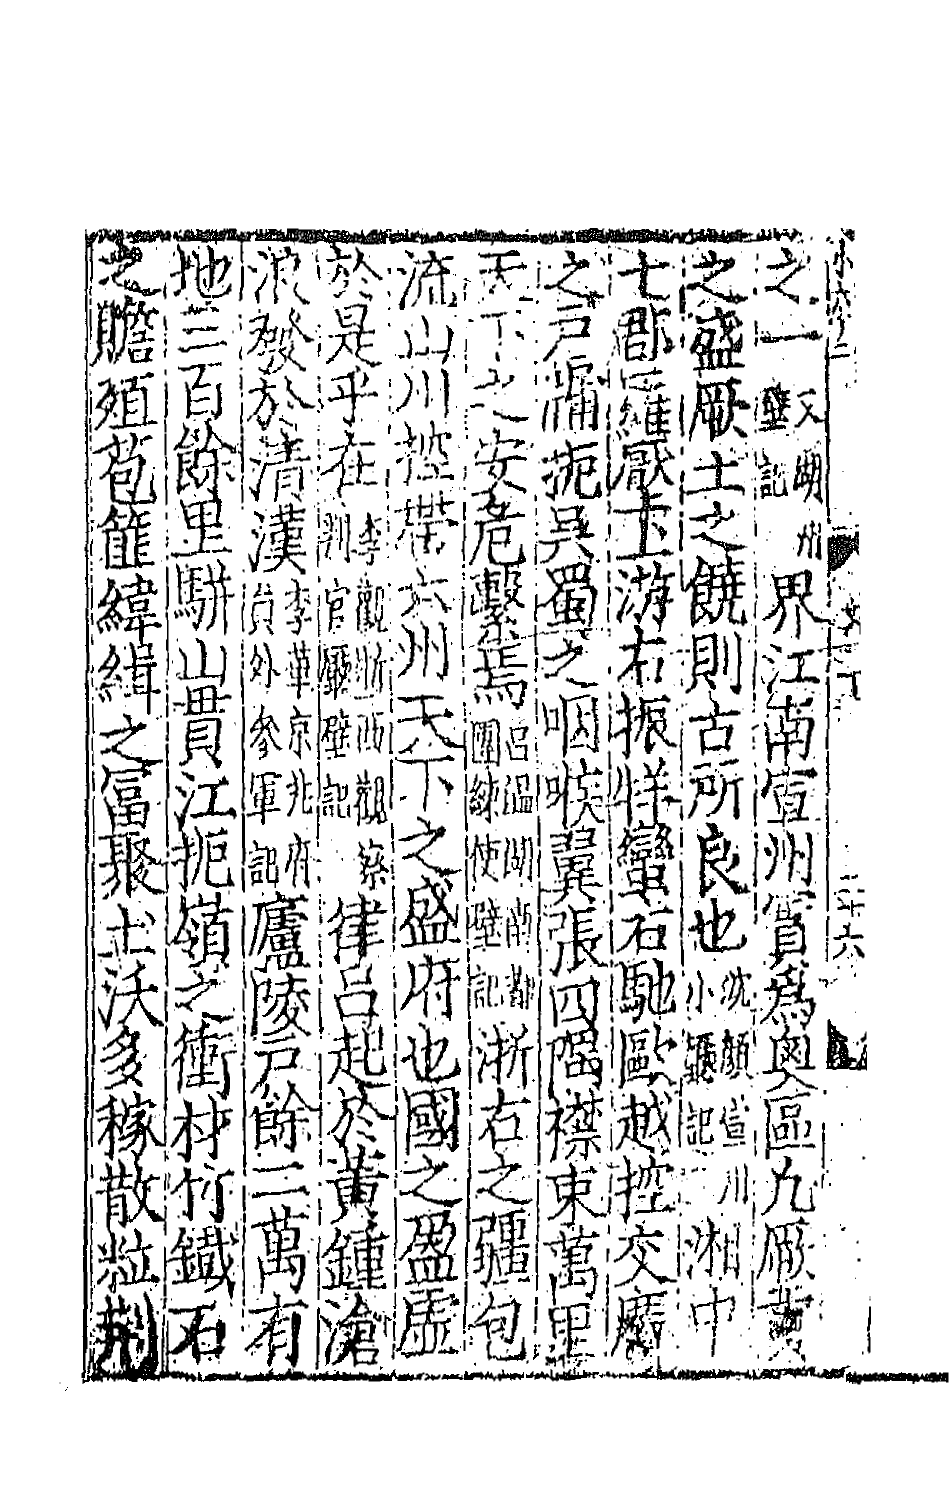 之一又湖州壁記界江南宣州實爲奧區九厥貢
之盛厥土之饒則古所良也沈顔宣州小廳記湘中
七郡羅厭上游右振牂蠻右馳歐越控交廣
之戶牖扼吳蜀之咽喉翼張四隅襟束萬里
天下之安危繫焉呂溫湖南都團練使壁記浙右之疆包
流山川控帶六州天下之盛府也國之盈虛
於是乎在李觀浙西觀察判官廳壁記律呂起於黃鍾滄
浪發於清漢李華京兆府員外參軍記廬陵戶餘二萬有
地三百餘里駢山貫江扼嶺之衝材竹鐵石
之贍殖苞篚緯緝之富聚土沃多稼散粒荆